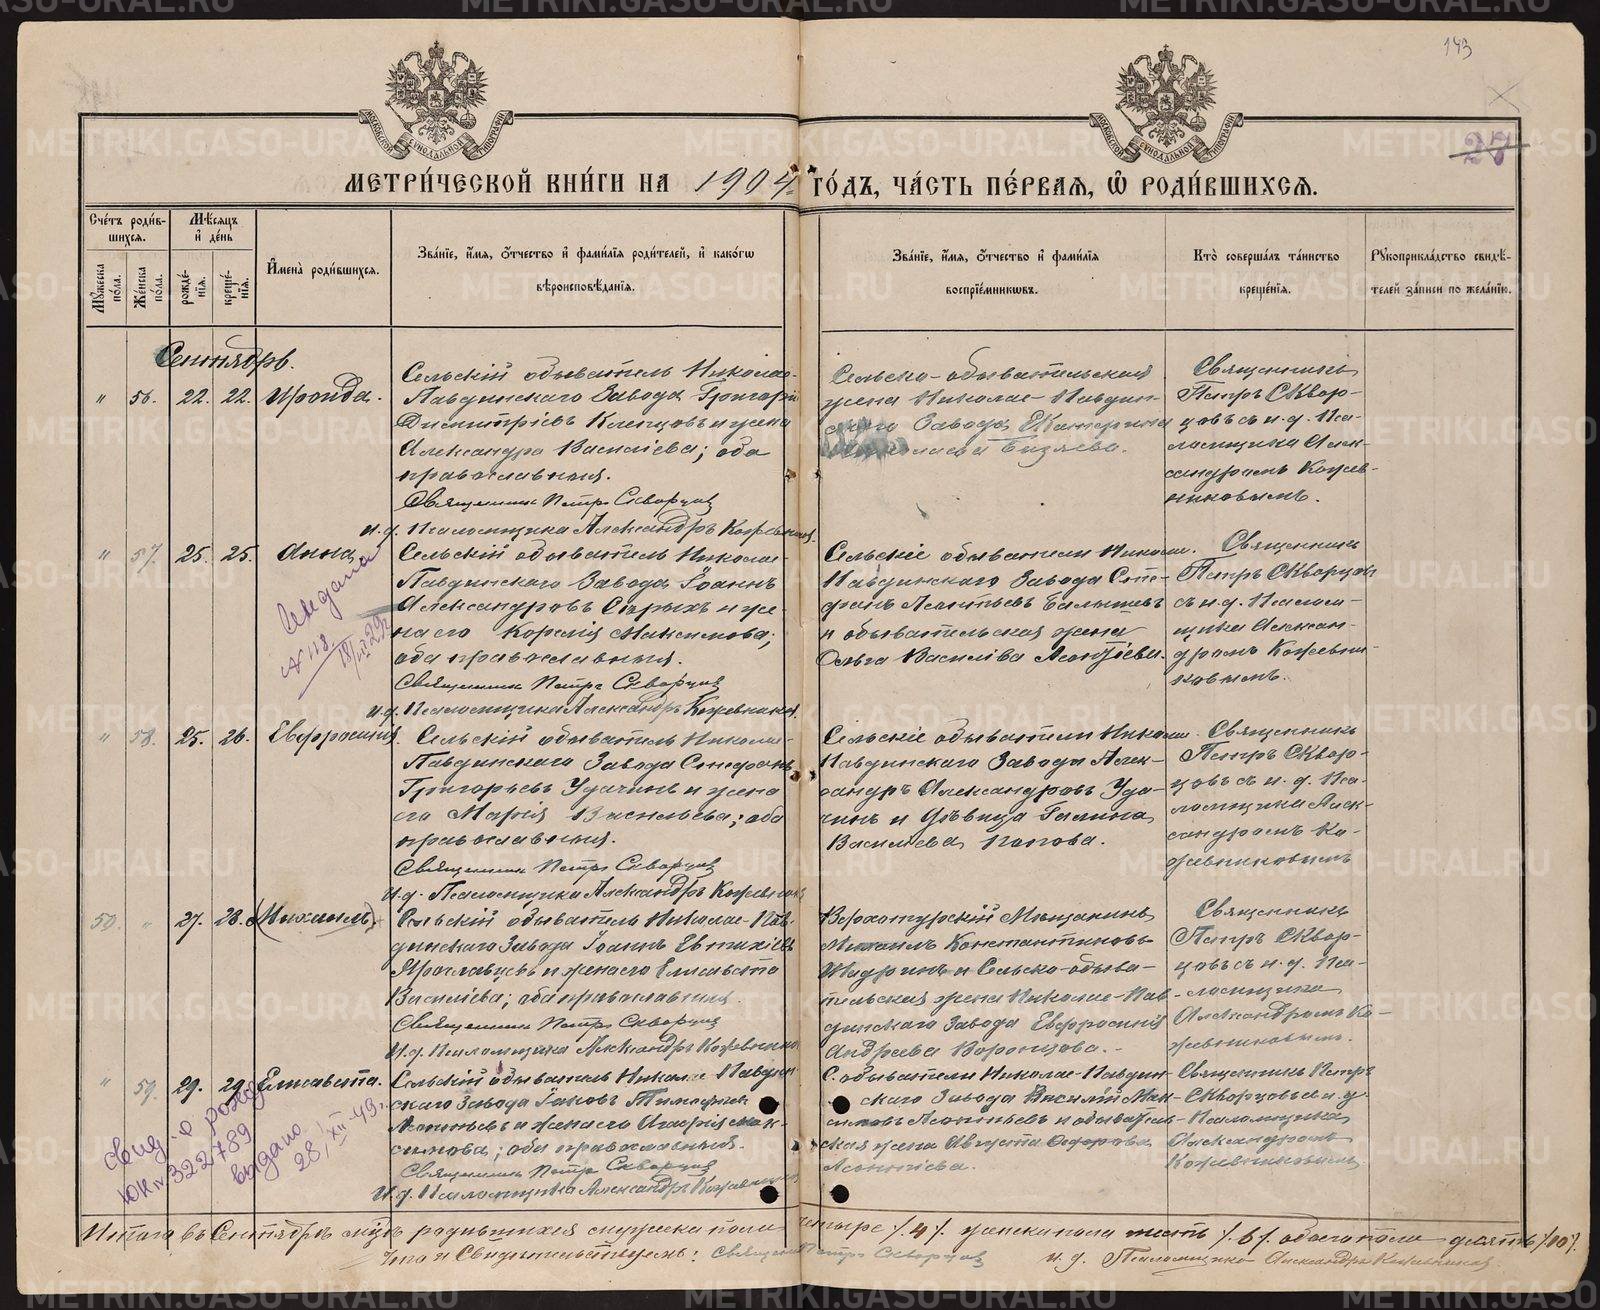 143
27
МЕТРИ́ЧЕСКОЙ КНИ́ГИ НА 1904 ГО́ДЪ, ЧА́СТЬ ПЕ́РВАЯ, Ѡ҆ РОДИ́ВШИХСЯ.
Сче́тъ роди́в-
шихся.
Мѣ́сяцъ
и҆ де́нь
Мꙋ́жеска по́ла.
Же́нска по́ла.
рожде́-
нїя.
креще́-
нїя.
И҆мена̀ роди́вшихся.
Зва́нїе, и҆́мя, ѻ҆́тчество и҆ фами́лїя роди́телей, и҆ како́гѡ
вѣроисповѣ́данїя.
Зва́нїе, и҆́мя, ѻ҆́тчество и҆ фами́лїя
воспрїе́мникѡвъ.
Кто̀ соверша́лъ та́инство
креще́нїя.
Рꙋкоприкла́дство свидѣ́-
телей за́писи по жела́нїю.
Сентябрь.
" 56. 22. 22. Ираида.
Сельскій обыватель Николае-
Павдинскаго Завода Григорій
Димитріевъ Клепцовъ и жена
Александра Василіева; оба
православныя.
Священникъ Петръ Скворцов
и.д. Псаломщика Александръ Кожевников.
Сельско-обывательская
жена Николае-Павдин-
скаго Завода Екатерина
Бизяева.
Священникъ
Петръ Сквор-
цовъ съ и.д. Пса-
ломщика Алек-
сандромъ Кожев-
никовымъ.
" 57. 25. 25. Анна
Сельскій обыватель Николае-
Павдинскаго Завода Іоаннъ
Александровъ Старыхъ и же-
на его Марія Максимова;
оба православныя.
Священникъ Петръ Скворцов
и.д. Псаломщика Александръ Кожевников.
Сельскіе обыватели Николае-
Павдинскаго Завода Сте-
фанъ Леонтьевъ
и обывательская жена
Ольга Василіева Леонтіева.
Священникъ
Петръ Скворцовъ
съ и.д. Псалом-
щика Алексан-
дромъ Кожевни-
ковымъ.
№ 118
" 58. 25. 26. Евфросинія.
Сельскій обыватель Николае-
Павдинскаго Завода Стефанъ
Григорьевъ Удачинъ и жена
его Марія Васильева; оба
православныя.
Священникъ Петръ Скворцов
и.д. Псаломщика Александръ Кожевников
Сельскіе обыватели Николае-
Павдинскаго Завода Алек-
сандръ Александровъ Уда-
чинъ и дѣвица Галина
Василіева Попова.
Священникъ
Петръ Сквор-
цовъ съ и.д. Пса-
ломщика Алек-
сандромъ Ко-
жевниковымъ
50. " 27. 28. (Михаилъ)
Сельскій обыватель Николае-Пав-
динскаго Завода Іоаннъ Евтихіевъ
Ярославцевъ и жена его Елисавета
Василіева; оба православныя.
Священникъ Петръ Скворцов
и.д. Псаломщика Александръ Кожевников
Верхотурскій Мѣщанинъ
Михаилъ Константиновъ
Шадринъ и Сельско-обыва-
тельская жена Николае-Пав-
динскаго Завода Евфросинія
Андреева Воронцова.
Священникъ
Петръ Сквор-
цовъ съ и.д. Пса-
ломщика
Александромъ Ко-
жевниковымъ.
" 59. 29. 29. Елисавета.
Сельскій обыватель Николае-Павдин-
скаго Завода Іаковъ Тимофеевъ
Леонтьевъ и жена его Агафія Мак-
симова; оба православныя.
Священникъ Петръ Скворцов
и.д. Псаломщика Александръ Кожевников
С. обыватели Николае-Павдин-
скаго Завода Василій Мак-
симовъ Леонтьевъ и обыватель-
ская жена Августа Ѳедорова
Леонтіева.
Священникъ Петръ
Скворцовъ съ и.д.
Псаломщика
Александромъ
Кожевниковымъ
свид-о рожд
ЮК № 322789
выдано
28/XII-49 г.
Итого въ Сентябрѣ мѣс. родившихся мужеска пола четыре /4/, женска пола шесть /6/, обоего пола десять /10/.
Что и Свидѣтельствуемъ: Священникъ Петръ Скворцов и.д. Псаломщика Александръ Кожевников
METRIKI.GASO-URAL.RU